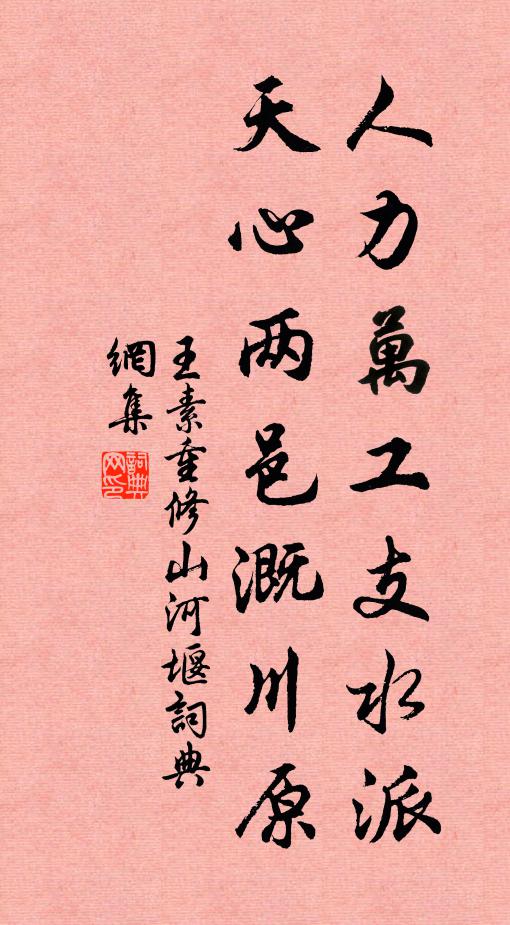 人力萬工支水派
天心两邑溉川原
王素重修山河堰詞典
網集
詞典網印